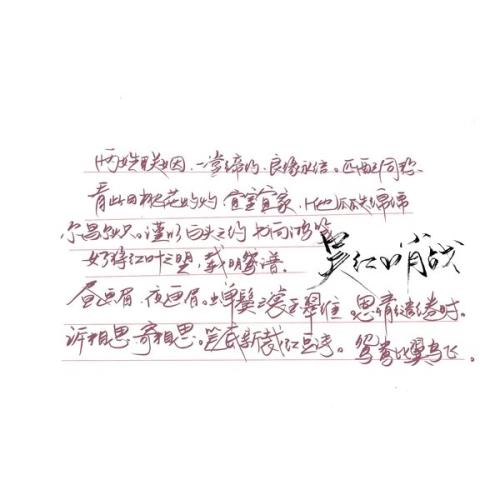 两姓联姻，一堂缔约，良缘永结，匹配同称。
看此日桃花灼灼，宜室宜家，卜他瓜瓞绵绵
尔昌尔炽。谨以白头之约，书向鸿笺
好将红叶之盟，载明鸳谱。
吴红哨战
昼画眉，夜画眉。蝉鬓 思情缱绻时。
诉相思，寄相思。笺底新裁红豆诗。鸳鸯比翼飞。